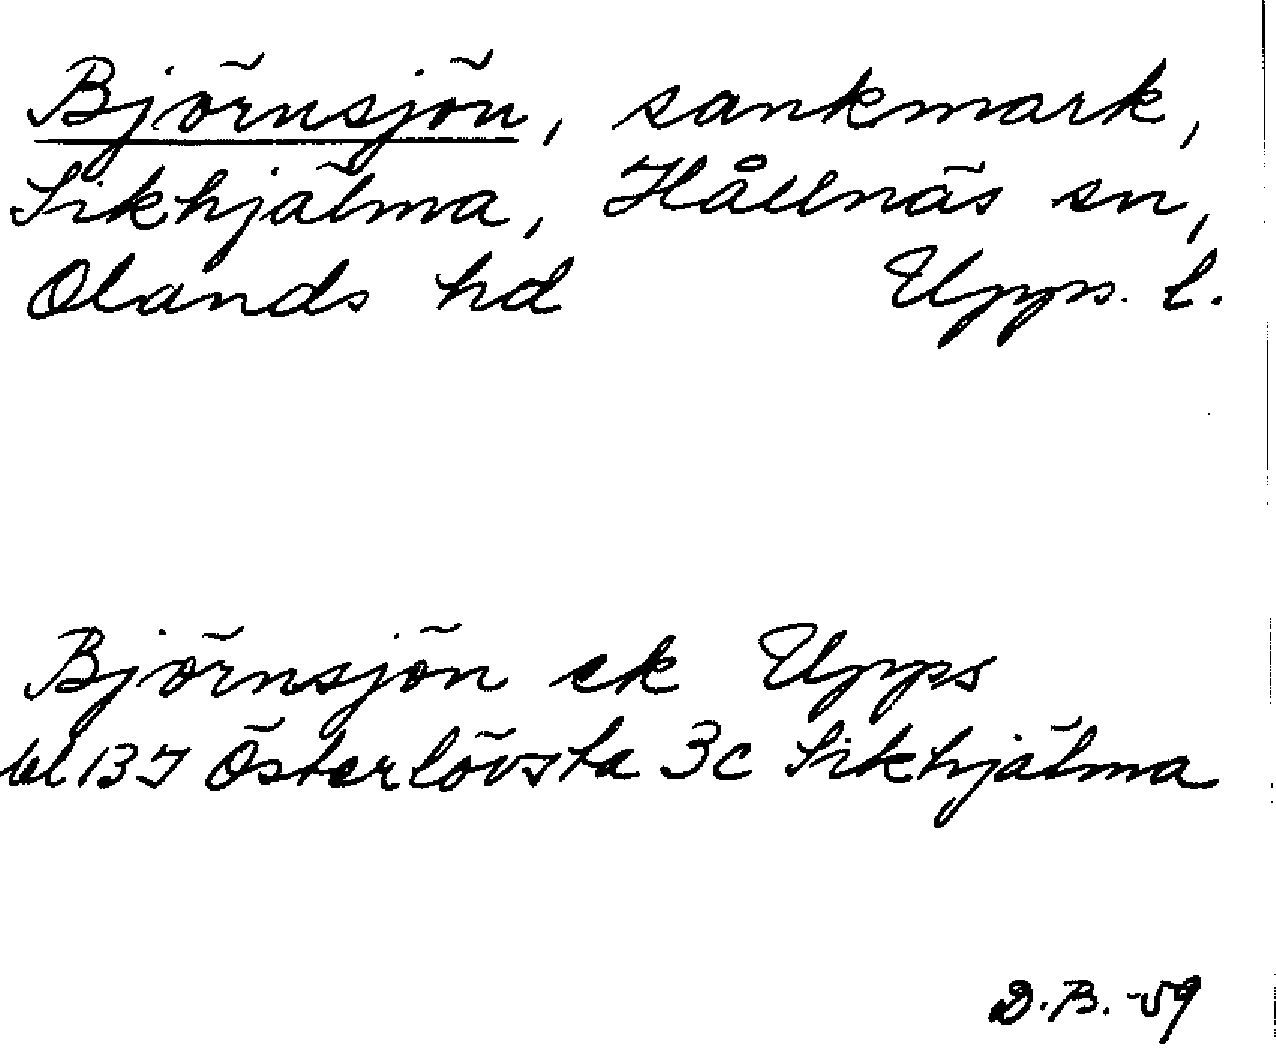 Björnsjön, sankmark,
Sikhjälma, Hållnäs sn,
Olands hd Upps. l.
Björnsjön ek Upps
bl 13 I Österlövsta 3c Sikhjälma
D.B. -59